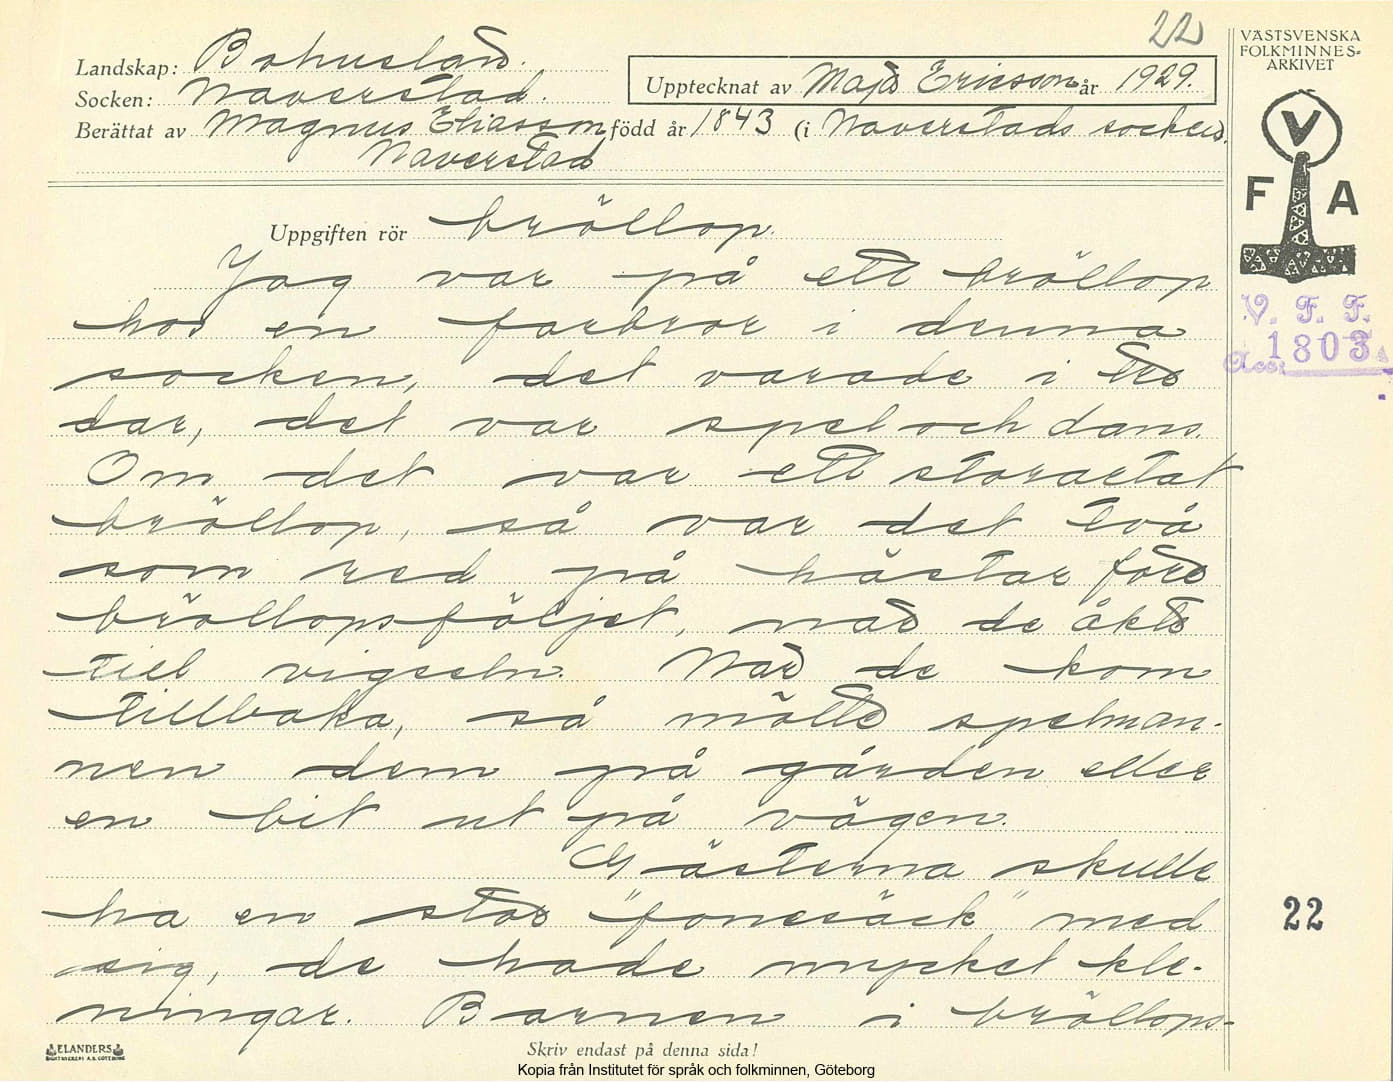 22
Landskap: Bohuslän.
Socken: Naverstad.
Upptecknat av Maja Ericsson år 1929.
Berättat av Magnus Eliasson född år 1843 (i Naverstads socken.
Naverstad
VÄSTSVENSKA
FOLKMINNES=
ARKIVET
V
F A
V. F. F.
Acc: 1803
Uppgiften rör bröllop.
Jag var på ett bröllop
hos en farbror i denna
socken, det varade i tre
dar, det var spel och dans.
Om det var ett storartat
bröllop, så var det två
som red på hästar före
bröllopsföljet, när de åkte
till vigseln. När de kom
tillbaka, så mötte spelman-
nen dem på gården eller
en bit ut på vägen.
Gästerna skulle
ha en stor "fonesäck" med
sig, de hade mycket klä-
ningar. Barnen i bröllops-
22
ELANDERS
Skriv endast på denna sida!
Kopia från Institutet för språk och folkminnen, Göteborg